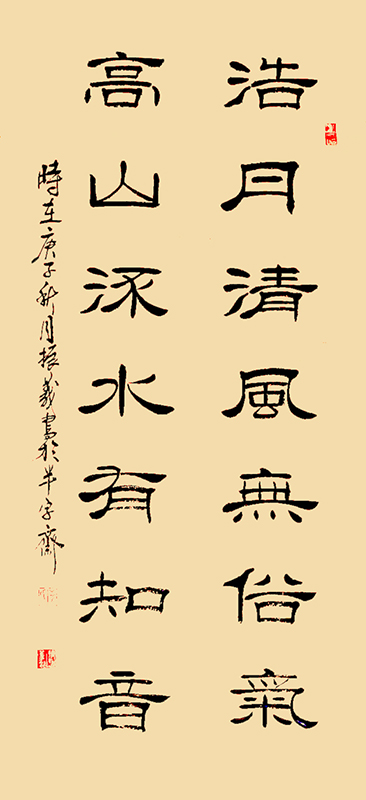 浩月清風無俗氣
高山流水有知音
時在庚子秋月振義書於半字齋